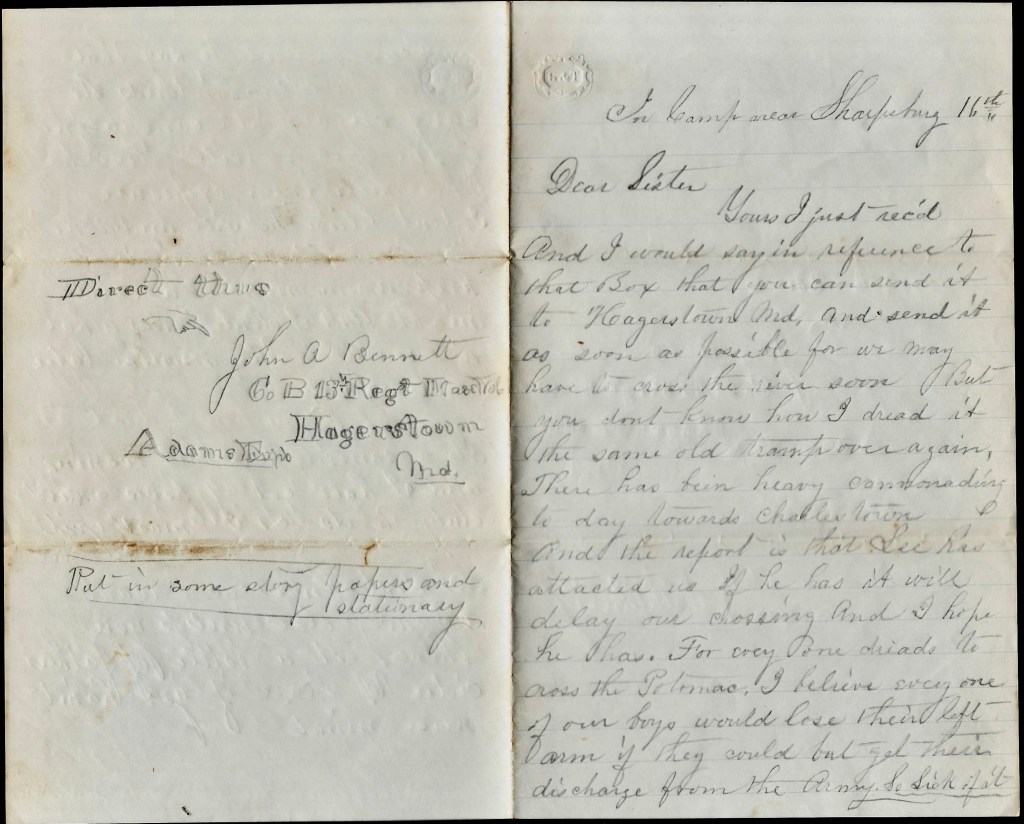 Direct thus
John A Bennett
Co B 13th Regt Mass Vol
Hagerstown
Adams Exp
Md.
Put in some story papers and
stationary
In Camp near Sharpsburg 16th
Dear Sister
Yours I just rec'd
And I would say in reference to
that Box that you can send it
to Hagerstown Md. and send it
as soon as possible for we may
have to cross the river soon But
you dont know how I dread it
the same old tramp over again.
There has been heavy cannonading
to day towards Charlestown
And the report is that Lee has
attacted us If he has it will
delay our crossing And I hope
he has. For evey one dreads to
cross the Potomac. I believe evey one
of our boys would lose their left
arm if they could but get their
discharge from the Army. So Sick of it